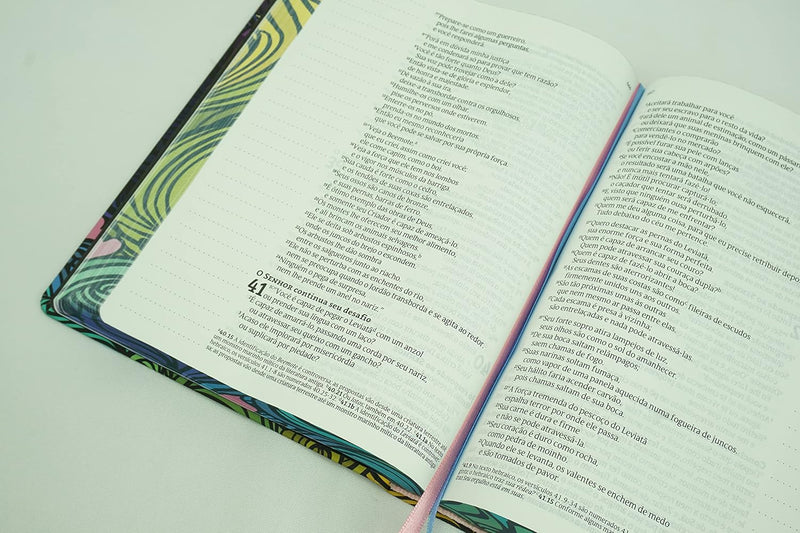 Prepare-se como um guerreiro,
pois lhe farei algumas perguntas,
e você responderá.
"Porá em dúvida minha justiça
e me condenará só para provar que tem razão?
Você é tão forte quanto Deus?
Sua voz pode trovejar como a dele?
Então vista-se de glória e esplendor,
de honra e majestade.
Dê vazão à sua ira,
deixe-a transbordar contra os orgulhosos.
Humilhe-os com um olhar,
pise os perversos onde estiverem.
Enterre-os no pó,
prenda-os no mundo dos mortos.
Então eu mesmo reconhecerei
que você pode se salvar por sua própria força.
"Veja o Beemote,
que eu criei, assim como criei você;
ele come capim, como o boi.
Veja a força que ele tem nos lombos
e o vigor dos músculos da barriga.
Sua cauda é forte como o cedro,
e os tendões de suas coxas são entrelaçados.
Seus ossos são canos de bronze,
e suas pernas, barras de ferro.
É ótimo exemplo das obras de Deus,
e somente seu Criador é capaz de ameaçá-lo.
Os montes lhe oferecem seu melhor alimento,
e ali brincam os animais selvagens.
Ele se deita sob arbustos espinhosos,
onde os juncos do brejo o escondem.
Os arbustos lhe dão sombra
entre os salgueiros junto ao riacho.
Ele não se perturba com as enchentes do rio,
nem se preocupa quando o Jordão transborda e se agita ao redor.
Ninguém o pega de surpresa
nem lhe prende um anel no nariz."
O SENHOR continua seu desafio
41 "Você é capaz de pegar o Leviatã com um anzol
ou prender sua língua com um laço?
É capaz de amarrá-lo, passando uma corda por seu nariz,
ou atravessar seu queixo com um gancho?
Acaso ele implorará por misericórdia
ou suplicará por piedade?
Aceitará trabalhar para você
e ser seu escravo para o resto da vida?
Fará dele um animal de estimação, como um pássaro,
ou deixará que suas meninas brinquem com ele?
Comerciantes o comprarão
para vendê-lo no mercado?
É possível furar sua pele com lanças
ou ferir sua cabeça com arpões?
Se você encostar a mão nele,
o resultado será uma batalha que você não esquecerá,
e nunca mais tentará fazê-lo.
Não! É inútil procurar capturá-lo;
o caçador que tentar será derrubado.
E, visto que ninguém ousa perturbá-lo,
quem será capaz de me enfrentar?
Quem me deu alguma coisa, para que eu precise retribuir depois?
Tudo debaixo do céu me pertence.
"Quero destacar as pernas do Leviatã,
sua enorme força e sua forma perfeita.
Quem é capaz de arrancar seu couro?
Quem pode atravessar sua couraça dupla?
Quem é capaz de fazê-lo abrir a boca?
Seus dentes são aterrorizantes!
As escamas de suas costas são como fileiras de escudos
firmemente unidos uns aos outros.
São tão próximas umas das outras
que nem mesmo ar passa entre elas.
Cada escama é presa à vizinha;
são entrelaçadas e nada pode atravessá-las.
"Seu forte sopro atira lampejos de luz,
seus olhos são como o sol do amanhecer.
De sua boca saltam relâmpagos;
saem chamas de fogo.
Suas narinas soltam fumaça,
como vapor de uma panela aquecida numa fogueira de juncos.
Seu hálito faria acender carvão,
pois chamas saltam de sua boca.
"A força tremenda do pescoço do Leviatã
espalha terror por onde ele passa.
Sua carne é dura e firme
e não se pode atravessá-la.
Seu coração é duro como rocha,
como pedra de moinho.
Quando ele se levanta, os valentes se enchem de medo
e são tomados de pavor.